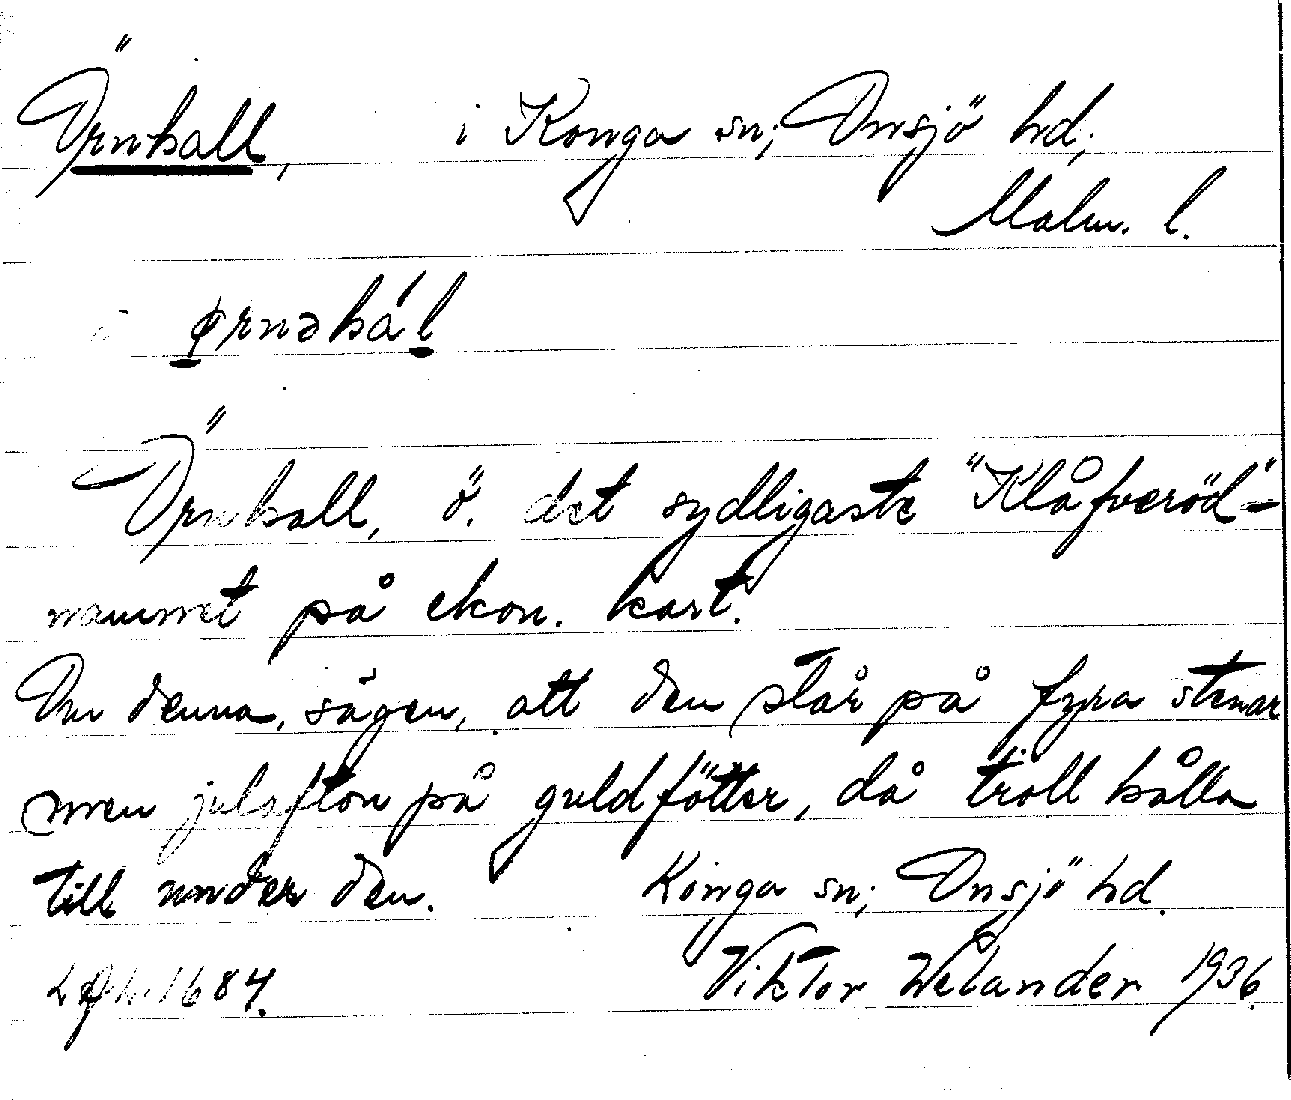 Örnhall, i Konga sn; Onsjö hd;
Malm. l.
ørnəhál
Örnhall, ö. det sydligaste "Klåfveröd"-
namnet på ekon. kart.
Om denna, sägen, att den står på fyra stenar
men julafton på guldfötter, då troll hålla
till under den. Konga sn; Onsjö hd.
1684. Viktor Welander 1936.